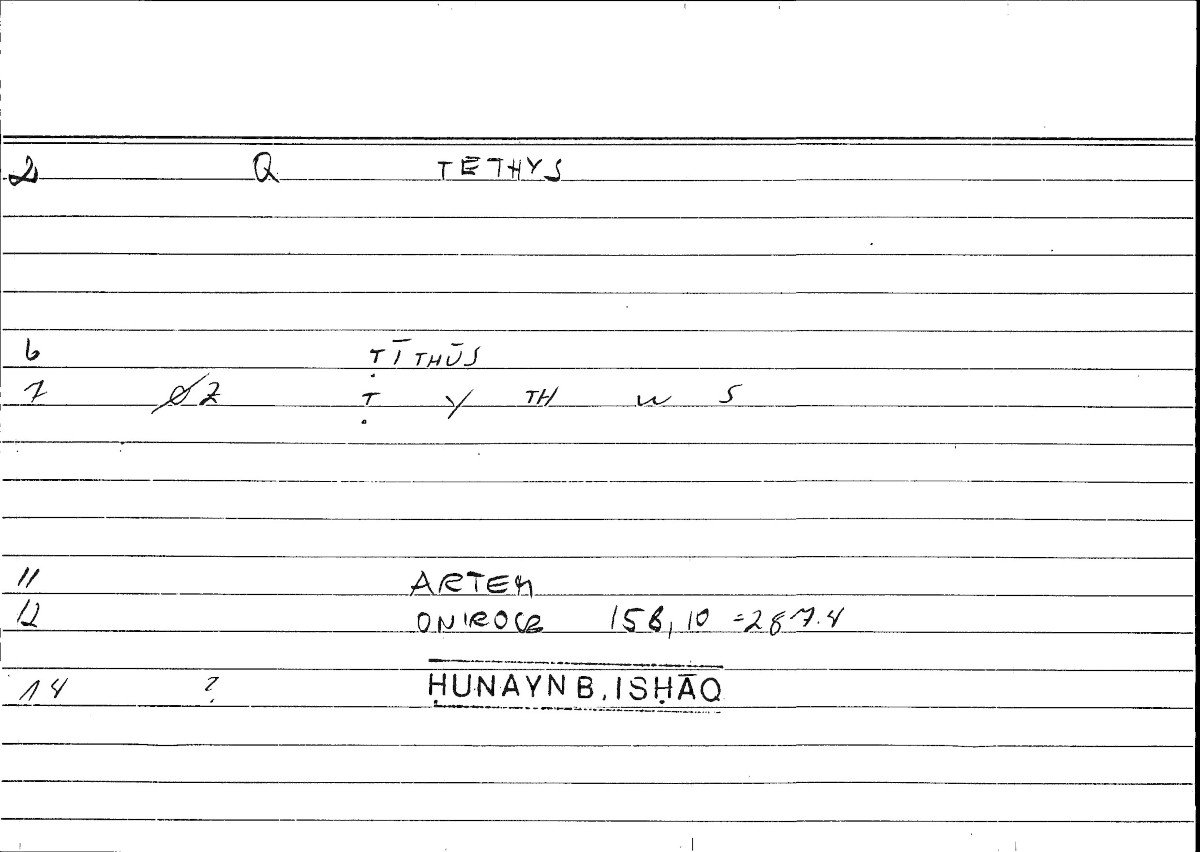 2 Q TĒTHYS
6 ṬĪTHŪS
7 ØZ Ṭ Y TH W S
11 ARTEM
12 ONIROCR 158,10 =287.4
14 ? ḤUNAYN B. ISḤĀQ